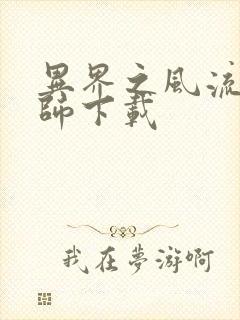 異界之風流
師下載
我在夢游啊